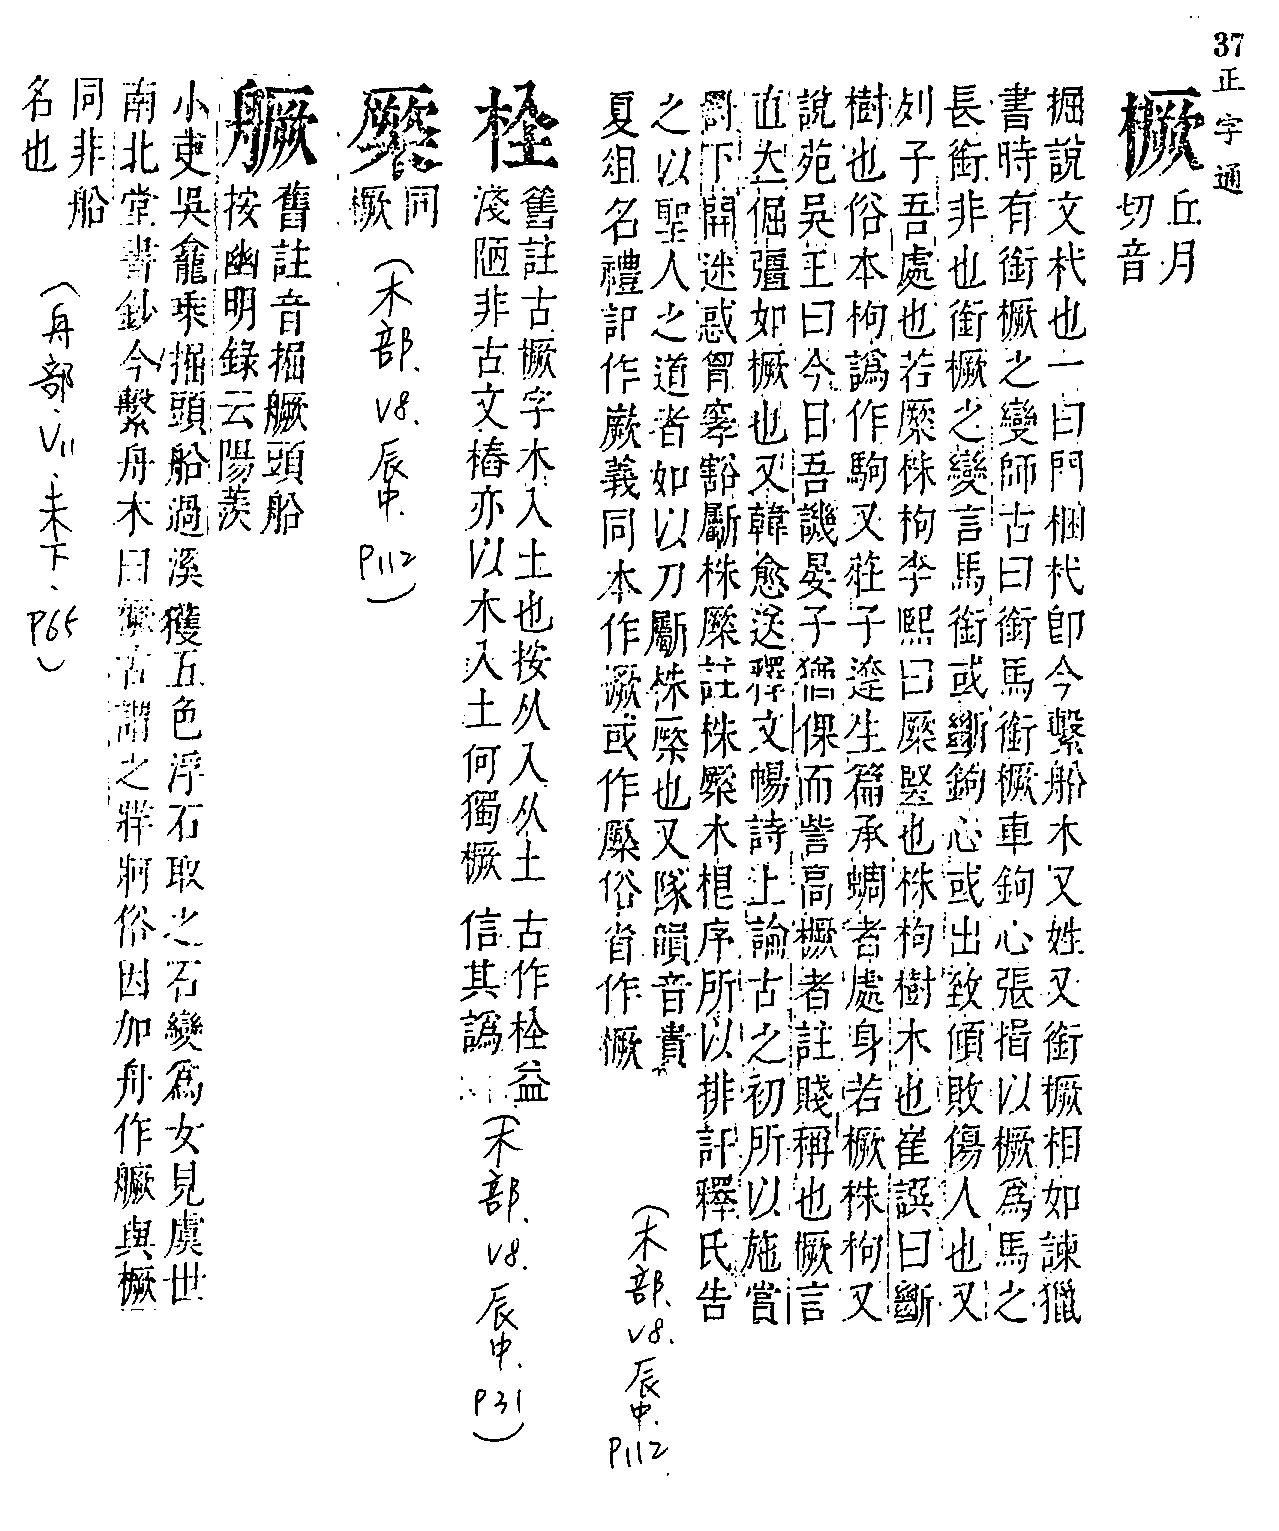 37 正字通
橛
丘月
切音
掘說文杙也一曰門梱杙卽今繫船木又姓又銜橛相如諫獵
書時有銜橛之變師古曰銜馬銜橛車鉤心張揖以橛爲馬之
長銜非也銜橛之變言馬銜或斷鉤心或出致傾敗傷人也又
列子吾處也若橜株枸李熙曰橜豎也株枸樹木也崔譔曰斷
樹也俗本枸譌作駒又莊子達生篇承蜩者處身若橛株枸又
說苑吳王曰今日吾譏晏子猶倮而訾高橛者註賤稱也橛言
直立倔彊如橛也又韓愈送釋文暢詩上論古之初所以施賞
罰下開迷惑胷窣豁斸株橜註株橜木根序所以排訐釋氏告
之以聖人之道者如以刀斸株橜也又隊韻音貴
夏俎名禮記作嶡義同本作橛或作橜俗省作橛
(木部.V8.辰中.P112)
栓
舊註古橛字木入土也按从入从土古作栓益
淺陋非古文樁亦以木入土何獨橛信其譌
(木部.V8.辰中.P31)
橜
同
橛
(木部.V8.辰中.P112)
艍
舊註音掘艍頭船
按幽明錄云陽羨
小吏吳龕乘掘頭船過溪獲五色浮石取之石變爲女見虞世
南北堂書鈔今繫舟木曰橛古謂之牂牁俗因加舟作艍與橛
同非船
名也
(舟部.V11.未下.P65)